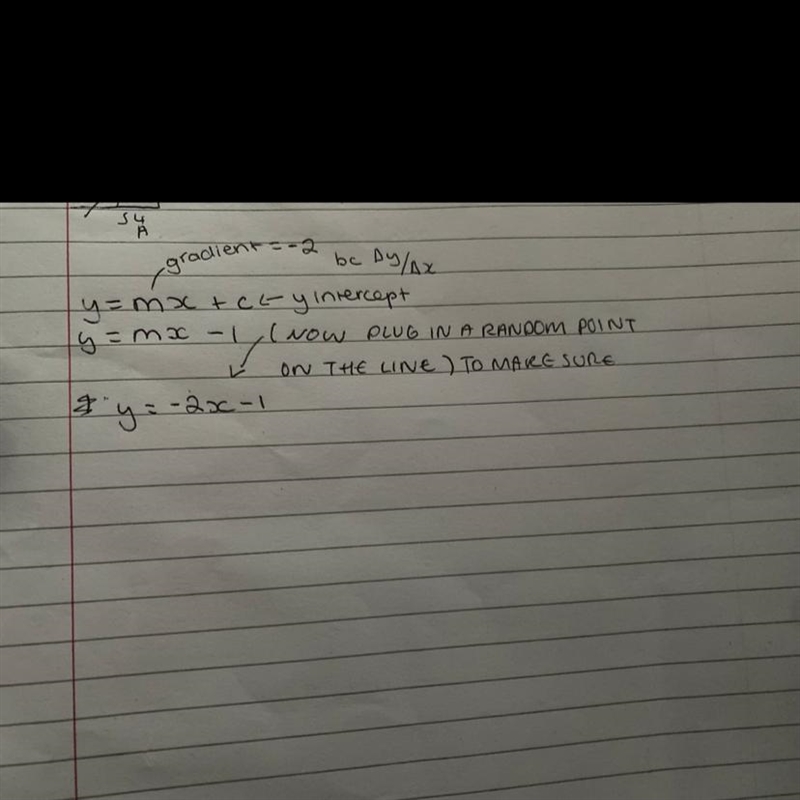 54
A
gradient = -2 bc Δy/Δx
y = mx + c ← y intercept
y = mx - 1 (NOW PLUG IN A RANDOM POINT
ON THE LINE) TO MAKE SURE
y = -2x - 1